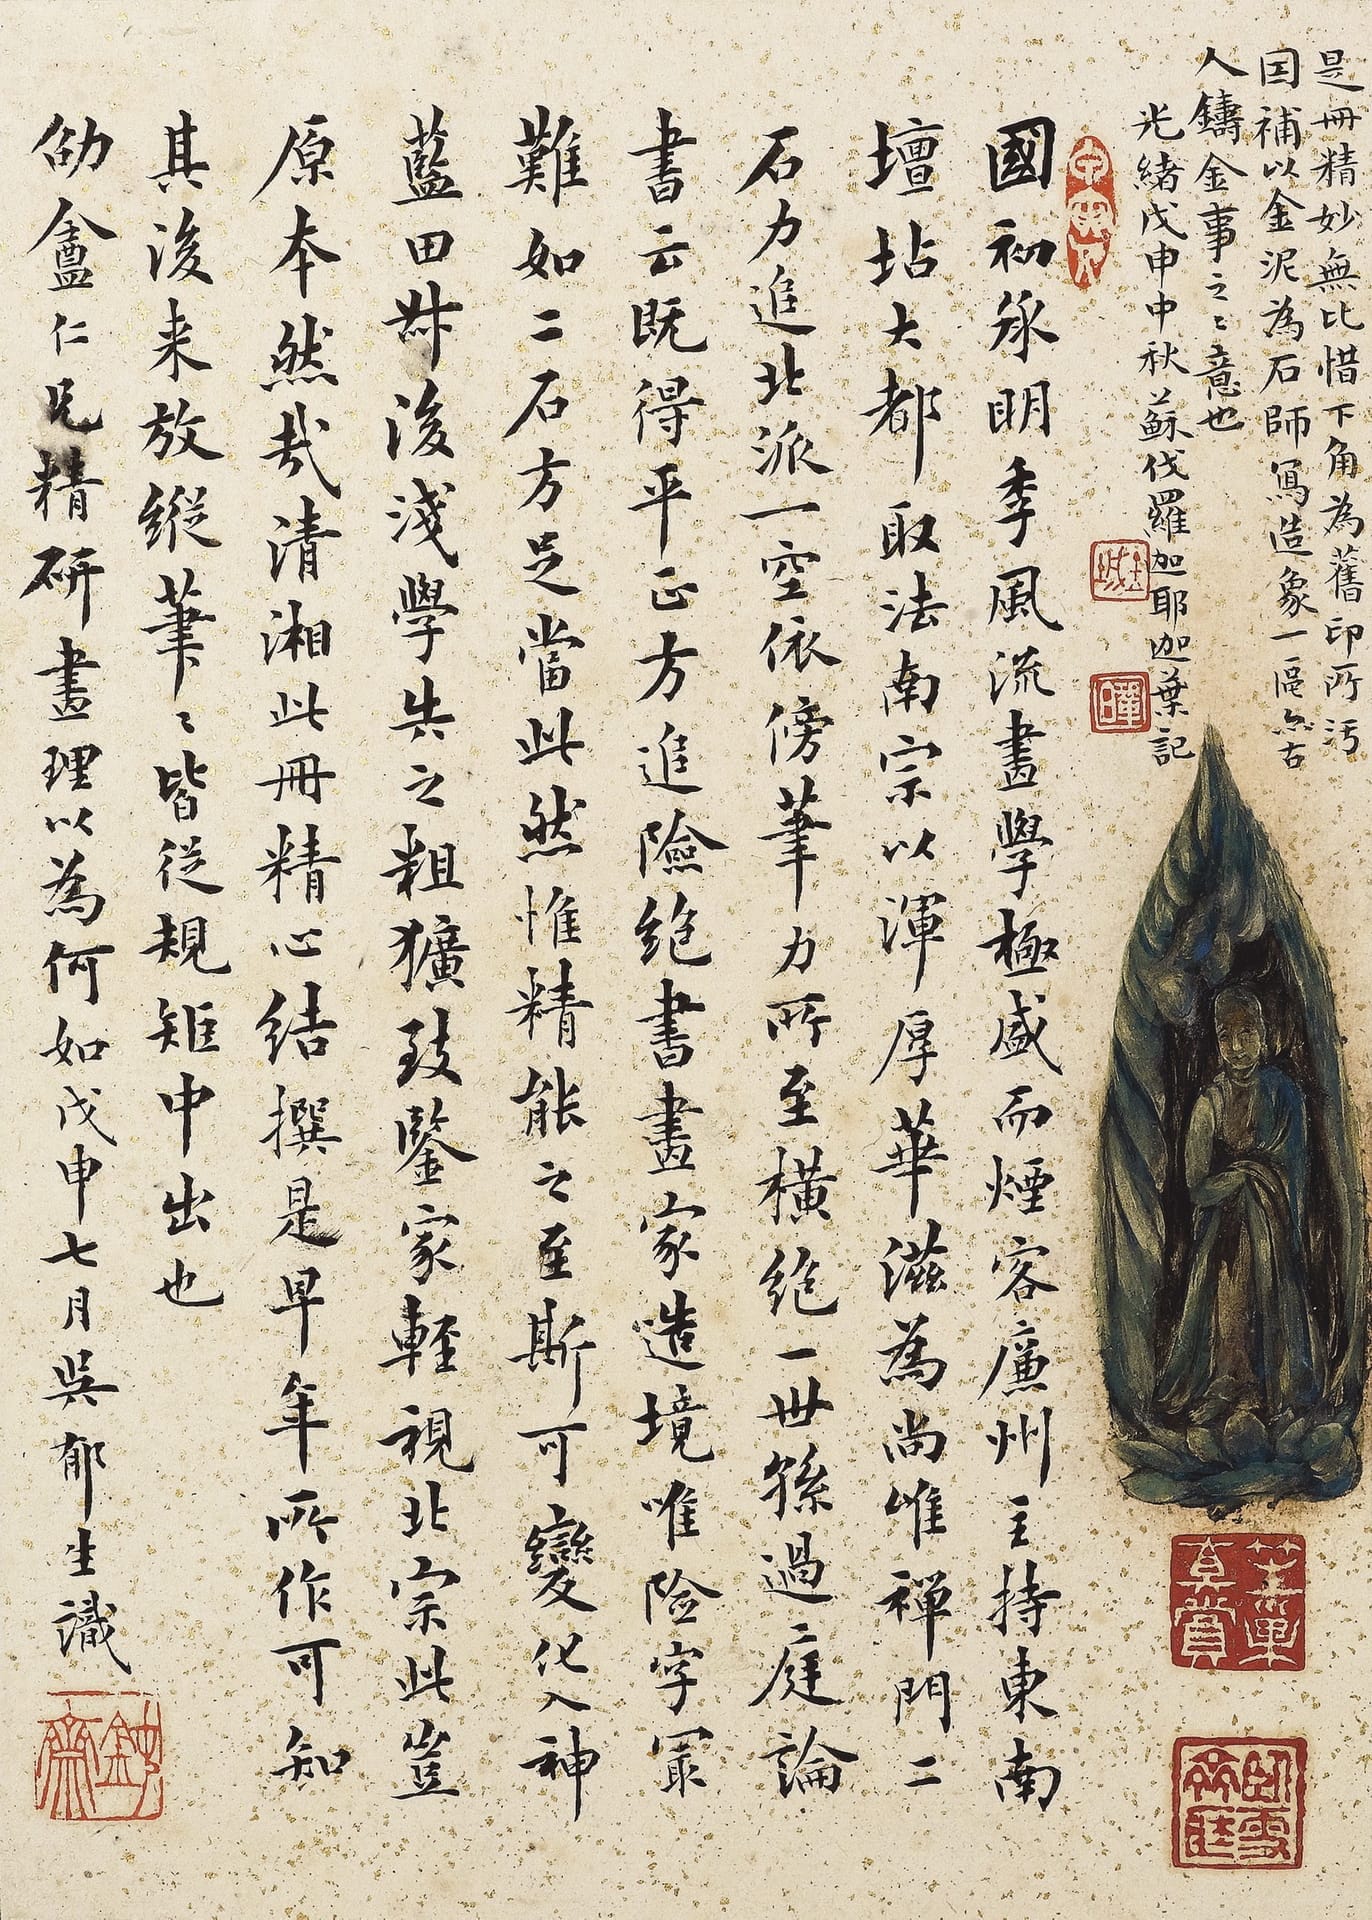 是冊精妙無比惜下角為舊印所汚
因補以金泥為石師寫造象一區亦古
人鑄金事之之意也
光緒戊申中秋蘇伐羅加耶迦葉記
國初承明季風流畫學極盛而煙客廉州主持東南
壇坫大都取法南宗以渾厚華滋為尚惟禅門二
石力追北派一空依傍筆力所至橫絶一世孫過庭論
書云既得平正方追險絶書畫家造境唯险字冣
難如二石方足當此然惟精能之至斯可變化入神
藍田叔後淺學失之粗獷致鑒家輕視北宗此豈
原本然哉清湘此冊精心結撰是早年所作可知
其後来放縱筆筆皆從規矩中出也
劬盦仁兄精研畫理以為何如戊申七月吳郁生識
鈍齋